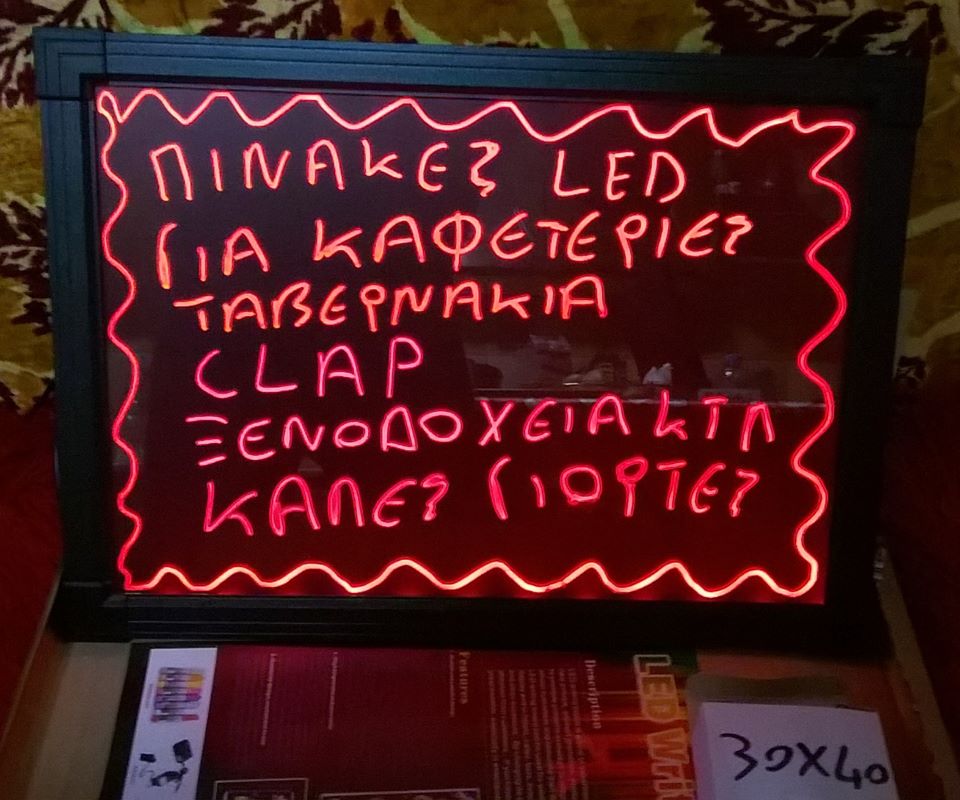 ΠΙΝΑΚΕΣ LED
ΓΙΑ ΚΑΦΕΤΕΡΙΕΣ
ΤΑΒΕΡΝΑΚΙΑ
CLAP
ΞΕΝΟΔΟΧΕΙΑ ΚΤΛ
ΚΑΛΕΣ ΓΙΟΡΤΕΣ
Features
Description
LED Wri
30X40